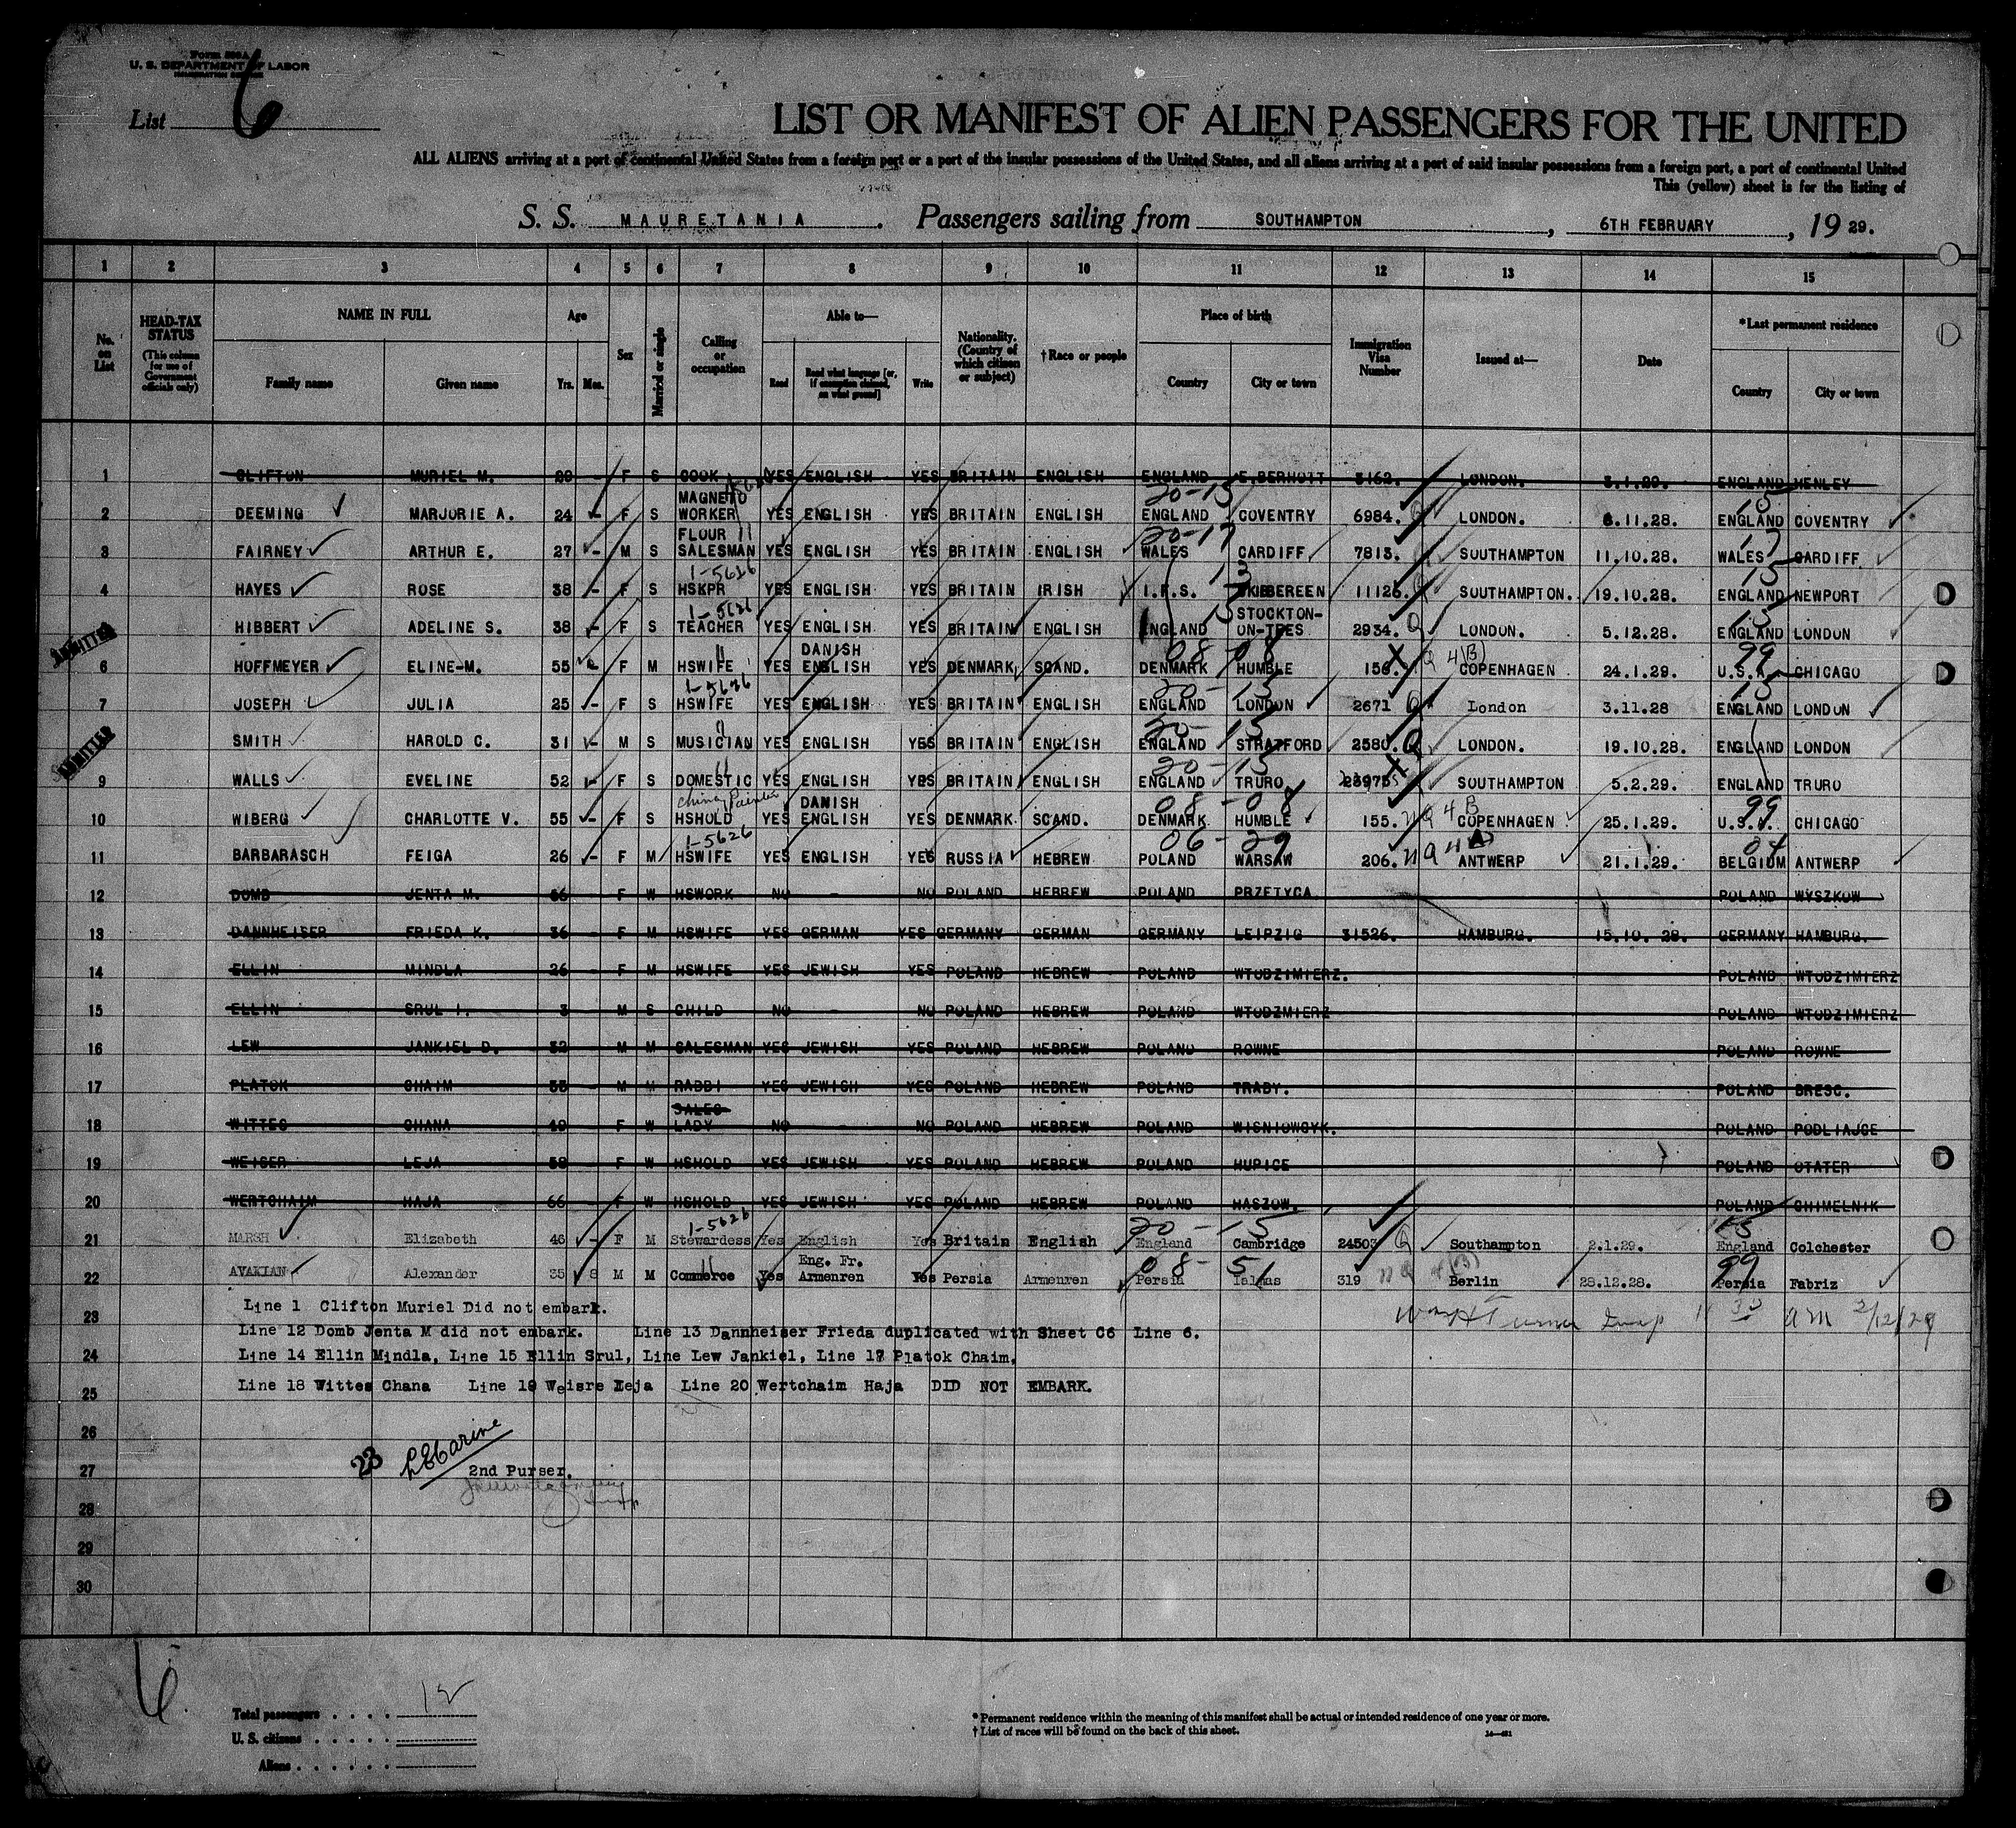 Form 500A
U. S. DEPARTMENT OF LABOR
IMMIGRATION SERVICE
List 6
LIST OR MANIFEST OF ALIEN PASSENGERS FOR THE UNITED
ALL ALIENS arriving at a port of continental United States from a foreign port or a port of the insular possessions of the United States, and all aliens arriving at a port of said insular possessions from a foreign port, a port of continental United
This (yellow) sheet is for the listing of
S. S. MAURETANIA. Passengers sailing from SOUTHAMPTON, 6TH FEBRUARY, 19 29.
1 2 3 4 5 6 7 8 9 10 11 12 13 14 15
No. on List
HEAD-TAX STATUS (This column for use of Government officials only)
NAME IN FULL Family name Given name
Age Yrs. Mos.
Sex
Married or single
Calling or occupation
Able to— Read Read what language [or, if exemption claimed, on what ground] Write
Nationality. (Country of which citizen or subject)
†Race or people
Place of birth Country City or town
Immigration Visa Number
Issued at—
Date
*Last permanent residence Country City or town
1 CLIFTON MURIEL M. 28 - F S COOK YES ENGLISH YES BRITAIN ENGLISH ENGLAND E.BERHOTT 3162. LONDON. 3.1.29. ENGLAND HENLEY
MAGNETO 20-15 15
2 DEEMING MARJORIE A. 24 - F S WORKER YES ENGLISH YES BRITAIN ENGLISH ENGLAND COVENTRY 6984. Q LONDON. 6.11.28. ENGLAND COVENTRY
FLOUR 11 20-17 17
3 FAIRNEY ARTHUR E. 27 - M S SALESMAN YES ENGLISH YES BRITAIN ENGLISH WALES CARDIFF 7813. SOUTHAMPTON 11.10.28. WALES CARDIFF
1-5626 15
4 HAYES ROSE 38 - F S HSKPR YES ENGLISH YES BRITAIN IRISH I.F.S. SKIBBEREEN 11126. SOUTHAMPTON. 19.10.28. ENGLAND NEWPORT
1-5626 15 STOCKTON- 15
5 HIBBERT ADELINE S. 38 - F S TEACHER YES ENGLISH YES BRITAIN ENGLISH ENGLAND ON-TEES 2934. Q LONDON. 5.12.28. ENGLAND LONDON
ADMITTED
11 DANISH 08-08 99
6 HOFFMEYER ELINE-M. 55 - F M HSWIFE YES ENGLISH YES DENMARK SCAND. DENMARK HUMBLE 156. Q 4(B) COPENHAGEN 24.1.29. U.S.A. CHICAGO
1-5626 20-15 15
7 JOSEPH JULIA 25 - F S HSWIFE YES ENGLISH YES BRITAIN ENGLISH ENGLAND LONDON 2671 Q London 3.11.28 ENGLAND LONDON
11 20-15
SMITH HAROLD C. 31 - M S MUSICIAN YES ENGLISH YES BRITAIN ENGLISH ENGLAND STRATFORD 2580. Q LONDON. 19.10.28. ENGLAND LONDON
ADMITTED
11 20-15
9 WALLS EVELINE 52 - F S DOMESTIC YES ENGLISH YES BRITAIN ENGLISH ENGLAND TRURO 23975 SOUTHAMPTON 5.2.29. ENGLAND TRURO
China Painter DANISH 08-08 99
10 WIBERG CHARLOTTE V. 55 - F S HSHOLD YES ENGLISH YES DENMARK SCAND. DENMARK HUMBLE 155. NQ 4B COPENHAGEN 25.1.29. U.S.A. CHICAGO
1-5626 06-29 04
11 BARBARASCH FEIGA 26 - F M HSWIFE YES ENGLISH YES RUSSIA HEBREW POLAND WARSAW 206. NQ 4 ANTWERP 21.1.29. BELGIUM ANTWERP
12 DOMB JENTA M. 66 - F W HSWORK NO - NO POLAND HEBREW POLAND PRZETYCA POLAND WYSZKOW
13 DANNHEISER FRIEDA K. 36 - F M HSWIFE YES GERMAN YES GERMANY GERMAN GERMANY LEIPZIG 31526. HAMBURG. 15.10.28. GERMANY HAMBURG.
14 ELLIN MINDLA 26 - F M HSWIFE YES JEWISH YES POLAND HEBREW POLAND WTODZIMIERZ. POLAND WTODZIMIERZ
15 ELLIN SRUL I. 3 M S CHILD NO NO POLAND HEBREW POLAND WTODZMIERZ POLAND WTODZIMIERZ
16 LEW JANKIEL D. 32 M M SALESMAN YES JEWISH YES POLAND HEBREW POLAND ROWNE POLAND ROWNE
17 PLATOK CHAIM 55 - M M RABBI YES JEWISH YES POLAND HEBREW POLAND TRABY. POLAND BRESC.
SALES
18 WITTES CHANA 49 - F W LADY NO NO POLAND HEBREW POLAND WISNIOWCYK. POLAND PODLIAJCE
19 WEISER LEJA 58 - F W HSHOLD YES JEWISH YES POLAND HEBREW POLAND HUPICE POLAND OTATER
20 WERTCHAIM HAJA 66 - F W HSHOLD YES JEWISH YES POLAND HEBREW POLAND HASZOW. POLAND CHIMELNIK
1-5626 20-15 15
21 MARSH Elizabeth 46 - F M Stewardess Yes English Yes Britain English England Cambridge 24503 Q Southampton 2.1.29. England Colchester
11 Eng. Fr. 08-51 99
22 AVAKIAN Alexander 35 8 M M Commerce Yes Armenren Yes Persia Armenren Persia 319 NQ 4(B) Berlin 28.12.28. Persia Fabriz
Line 1 Clifton Muriel Did not embark.
23
Turner Insp 11 30 am 2/12/29
Line 12 Domb Jenta M did not embark. Line 13 Dannheiser Frieda duplicated with Sheet C6 Line 6.
24 Line 14 Ellin Mindla, Line 15 Ellin Srul, Line Lew Jankiel, Line 17 Platok Chaim,
25 Line 18 Wittes Chana Line 19 Weisre Leja Line 20 Wertchaim Haja DID NOT EMBARK.
26
27 23 2nd Purser.
28
29
30
6
Total passengers . . . . 12
U. S. citizens . . . . .
Aliens . . . . . .
* Permanent residence within the meaning of this manifest shall be actual or intended residence of one year or more.
† List of races will be found on the back of this sheet.